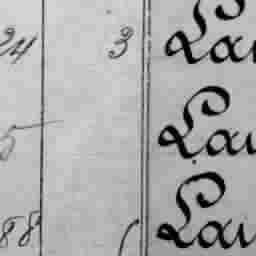 24 3 Lau
5 Lau
88 Lau